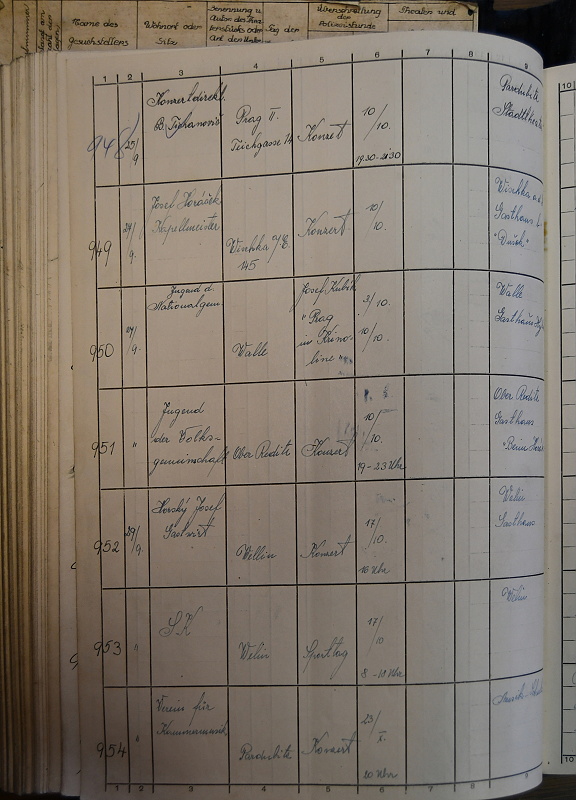 Name des
gesuchstellers
Wohnort oder
Sitz
Benennung u.
Autor des
Art der
Tag der
Überschreitung
der
Polizeistunde
Theater und
1 2 3 4 5 6 7 8 9 10
948 25/9. Konzertdirekt.
B. Prag II.
Teichgasse 14 Konzert 10/10.
19.30-21.30 Pardubitz
Stadttheater
949 24/9. Josef Horáček
Kapellmeister Konzert 10/10. Gasthaus
145
950 27/9. Jugend d.
Nationalgem. Walle Josef Kubík
"Prag
in Krino-
line" 3/10.
10/10. Walle
Gasthaus
951 " Jugend
der Volks-
gemeinschaft Ober Reditz Konzert 10/10.
19-23 Uhr Ober Reditz
Gasthaus
"Beim
952 29/9. Horský Josef
Gastwirt Wellin Konzert 17/10.
16 Uhr Welin
Gasthaus
953 " SK Welin Sporttag 17/10
8-18 Uhr Welin
954 " Verein für
Kammermusik Pardubitz Konzert 23/X.
20 Uhr
1 2 3 4 5 6 7 8 9 10